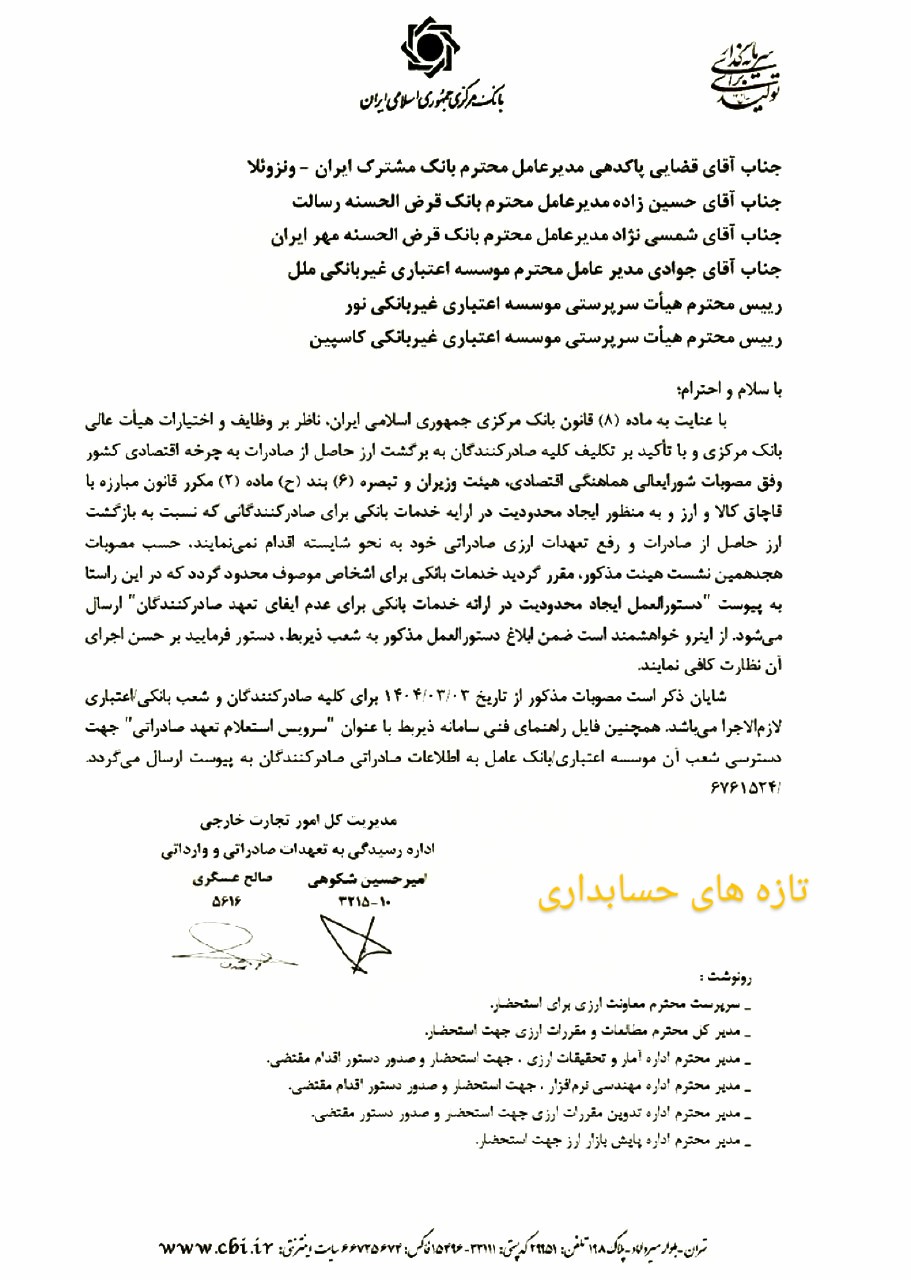 بانک مرکزی جمهوری اسلامی ایران
سرمایه‌گذاری
برای
تولید
جناب آقای قضایی پاکدهی مدیرعامل محترم بانک مشترک ایران - ونزوئلا
جناب آقای حسین زاده مدیرعامل محترم بانک قرض الحسنه رسالت
جناب آقای شمسی نژاد مدیرعامل محترم بانک قرض الحسنه مهر ایران
جناب آقای جوادی مدیر عامل محترم موسسه اعتباری غیربانکی ملل
رییس محترم هیأت سرپرستی موسسه اعتباری غیربانکی نور
رییس محترم هیأت سرپرستی موسسه اعتباری غیربانکی کاسپین
با سلام و احترام؛
با عنایت به ماده (۸) قانون بانک مرکزی جمهوری اسلامی ایران، ناظر بر وظایف و اختیارات هیأت عالی
بانک مرکزی و با تأکید بر تکلیف کلیه صادرکنندگان به برگشت ارز حاصل از صادرات به چرخه اقتصادی کشور
وفق مصوبات شورایعالی هماهنگی اقتصادی، هیئت وزیران و تبصره (۶) بند (ح) ماده (۲) مکرر قانون مبارزه با
قاچاق کالا و ارز و به منظور ایجاد محدودیت در ارایه خدمات بانکی برای صادرکنندگانی که نسبت به بازگشت
ارز حاصل از صادرات و رفع تعهدات ارزی صادراتی خود به نحو شایسته اقدام نمی‌نمایند، حسب مصوبات
هجدهمین نشست هیئت مذکور، مقرر گردید خدمات بانکی برای اشخاص موصوف محدود گردد که در این راستا
به پیوست "دستورالعمل ایجاد محدودیت در ارائه خدمات بانکی برای عدم ایفای تعهد صادرکنندگان" ارسال
می‌شود. از اینرو خواهشمند است ضمن ابلاغ دستورالعمل مذکور به شعب ذیربط، دستور فرمایید بر حسن اجرای
آن نظارت کافی نمایند.
شایان ذکر است مصوبات مذکور از تاریخ ۱۴۰۴/۰۳/۰۳ برای کلیه صادرکنندگان و شعب بانکی/اعتباری
لازم‌الاجرا می‌باشد. همچنین فایل راهنمای فنی سامانه ذیربط با عنوان "سرویس استعلام تعهد صادراتی" جهت
دسترسی شعب آن موسسه اعتباری/بانک عامل به اطلاعات صادراتی صادرکنندگان به پیوست ارسال می‌گردد.
/۶۷۶۱۵۲۴
مدیریت کل امور تجارت خارجی
اداره رسیدگی به تعهدات صادراتی و وارداتی
امیرحسین شکوهی صالح عسگری
۳۲۱۵-۱۰ ۵۶۱۶
تازه های حسابداری
رونوشت :
_ سرپرست محترم معاونت ارزی برای استحضار.
_ مدیر کل محترم مطالعات و مقررات ارزی جهت استحضار.
_ مدیر محترم اداره آمار و تحقیقات ارزی ، جهت استحضار و صدور دستور اقدام مقتضی.
_ مدیر محترم اداره مهندسی نرم‌افزار ، جهت استحضار و صدور دستور اقدام مقتضی.
_ مدیر محترم اداره تدوین مقررات ارزی جهت استحضر و صدور دستور مقتضی.
_ مدیر محترم اداره پایش بازار ارز جهت استحضار.
تهران-بلوار میرداماد-پلاک ۱۹۸ تلفن: ۲۹۹۵۱ کدپستی: ۳۳۱۱۱-۱۵۴۹۶ فاکس: ۶۶۷۳۵۶۷۴ سایت اینترنتی: www.cbi.ir